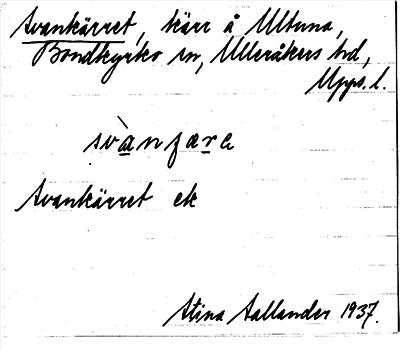 Svankärret, kärr å Ultuna,
Bondkyrko sn, Ulleråkers hd,
Upps. l.
Svankärret ek
Stina Sallander 1937.